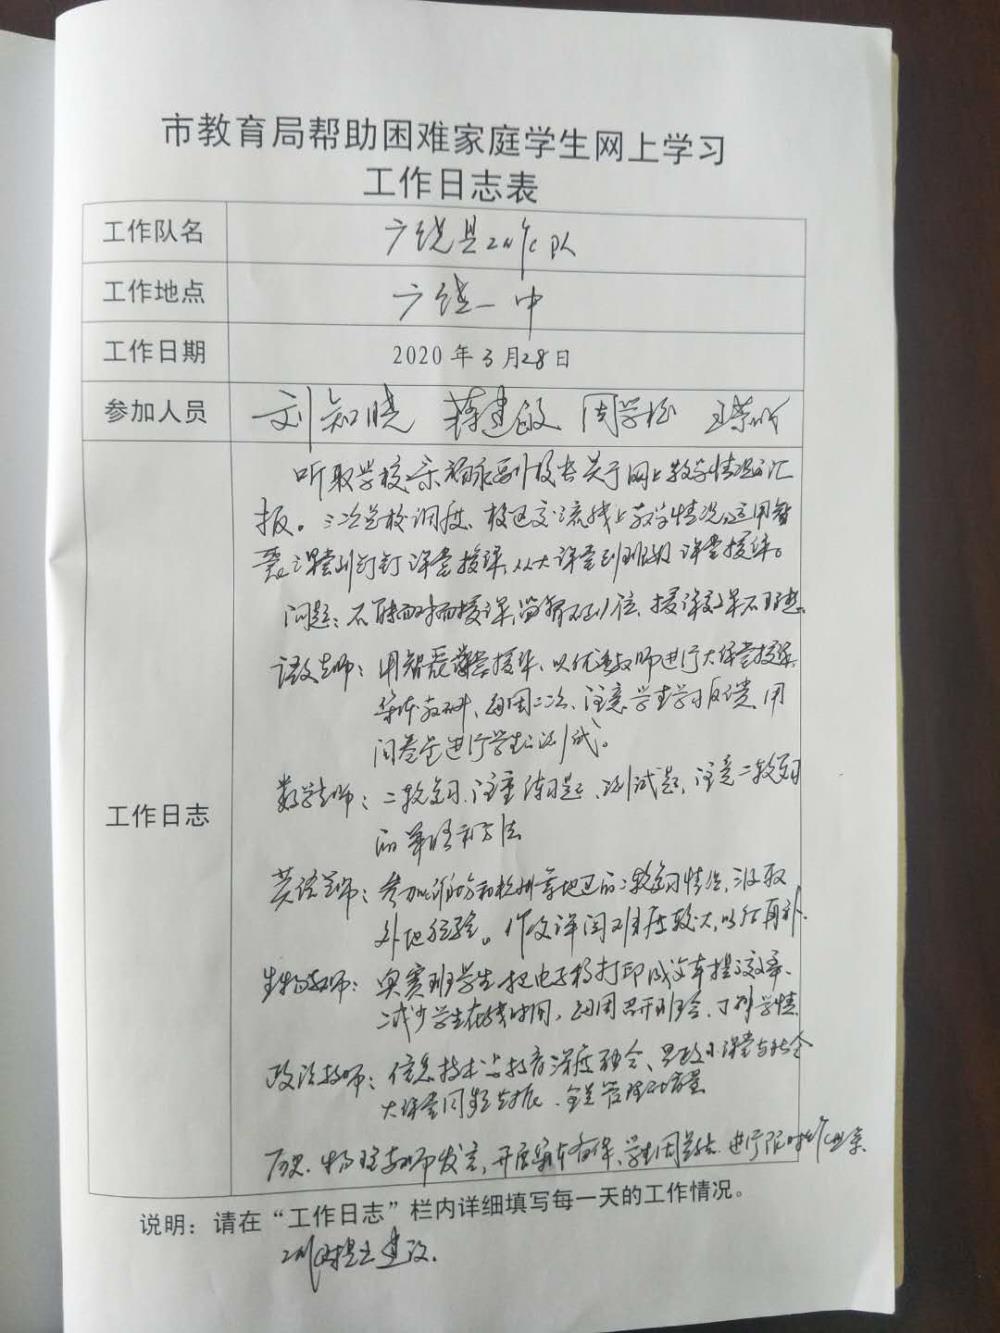 市教育局帮助困难家庭学生网上学习
工作日志表
工作队名
广饶县工作队
工作地点
广饶一中
工作日期
2020年3月28日
参加人员
刘知晓 蒋建敏 周学松
工作日志
听取学校宋福永副校长关于网上教学情况的汇
报。三次学校调度、校区交流线上教学情况,运用智
慧课堂到钉钉课堂授课,从大课堂到班级课堂授课。
问题:不能面对面授课,监督不到位,授课效果不理想。
语文老师:用智慧课堂授课、以优秀教师进行大课堂授课
集体教研、每周二次、注意学生学习反馈,用
问卷星进行学生的测试。
数学老师:二轮复习、注重练习题、测试题,注意二轮复习
的策略和方法
英语老师:参加潍坊和杭州等地区的二轮复习情况,汲取
外地经验。作文详阅难度较大,以后再补。
生物教师:奥赛班学生把电子稿打印成文本提高效率、
减少学生在线时间,每周召开班会、了解学情
政治教师:信息技术与教育深度融合、思政小课堂与社会
大课堂同频共振、全员管理
历史、物理教师发言,开展、学生、进行限时作业
说明:请在“工作日志”栏内详细填写每一天的工作情况。
建议.